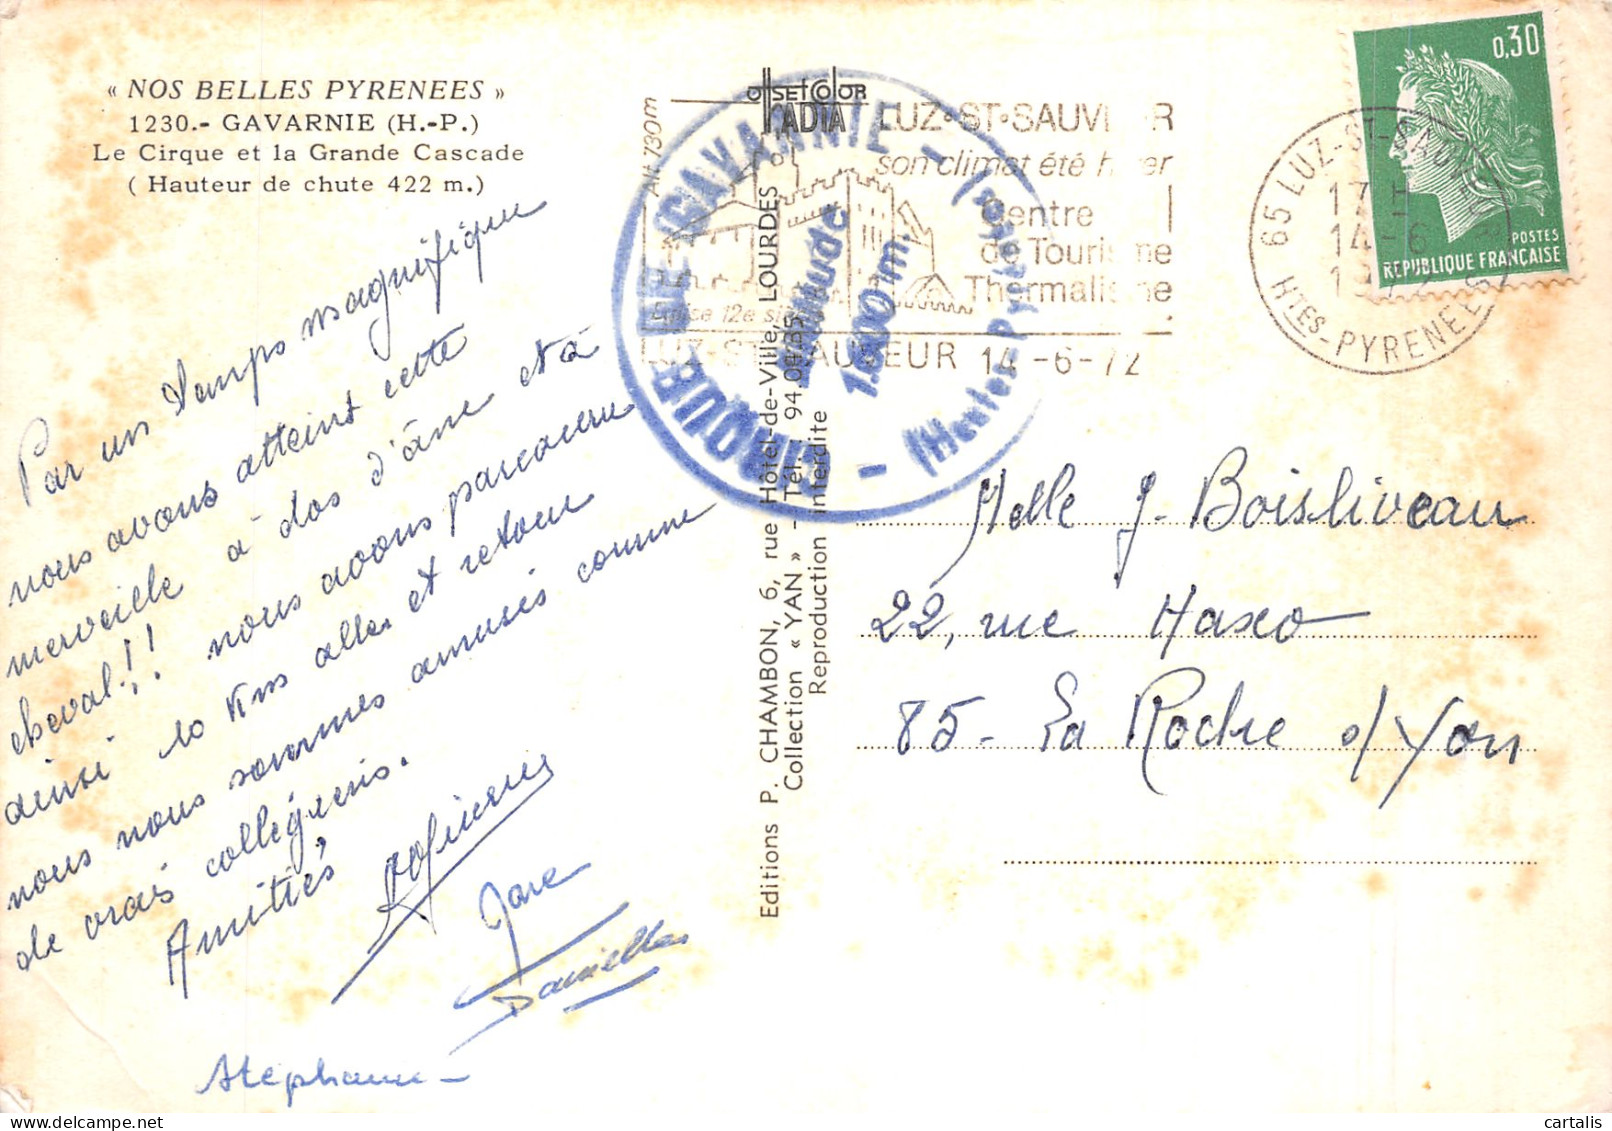 « NOS BELLES PYRENEES »
1230.- GAVARNIE (H.-P.)
Le Cirque et la Grande Cascade
( Hauteur de chute 422 m.)
Par un temps magnifique
nous avons atteint cette
merveille à dos d'âne et à
cheval!! nous avons parcouru
ainsi 10 Kms aller et retour
nous nous sommes amusés comme
de vrais collégiens.
Amitiés
Danielle
Stéphane
Editions P. CHAMBON, 6, rue Hôtel-de-Ville, LOURDES
Collection « YAN » - Tél. 94.04.85
Reproduction interdite
offset color
CADIA
CIRQUE DE GAVARNIE - (Hautes Pyrénées) -
Altitude
1.500 m.
Alt. 730m
LUZ-ST-SAUVEUR
son climat été hiver
Centre
de Tourisme
Thermalisme
Eglise 12e siècle
LUZ-ST-SAUVEUR 14-6-72
65 LUZ-ST-SAUVEUR
17H
14-6
1972
HTES-PYRENEES
0,30
POSTES
REPUBLIQUE FRANÇAISE
Melle J. Boisliveau
22, rue Haxo
85 - La Roche s/ Yon
cartalis